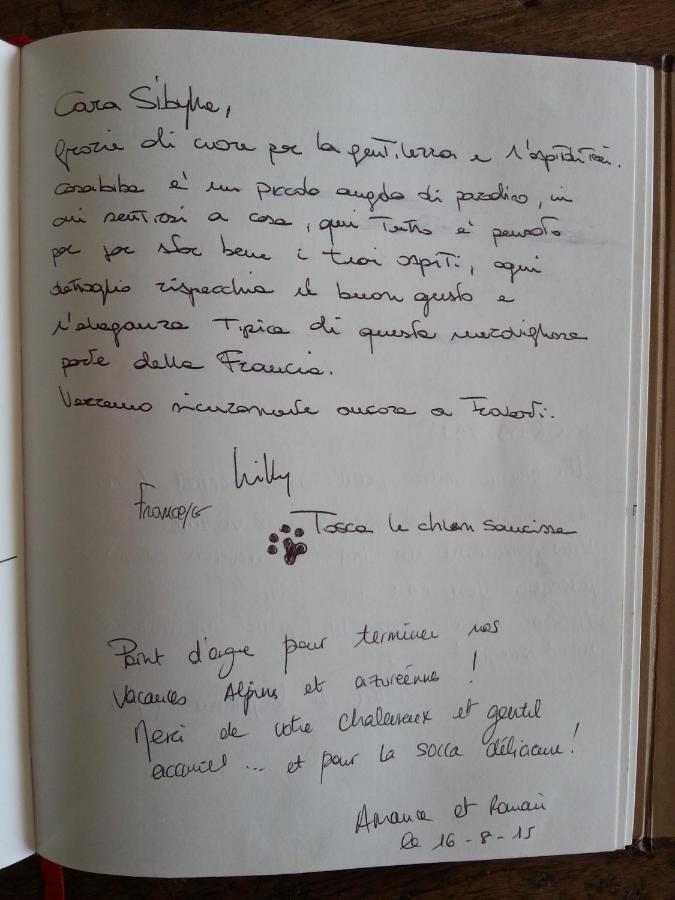 Cara Sibylle,
grazie di cuore per la gentilezza e l'ospitalità.
Casabiba è un piccolo angolo di paradiso, in
cui sentirsi a casa, qui tutto è pensato
per far star bene i tuoi ospiti, ogni
dettaglio rispecchia il buon gusto e
l'eleganza tipica di questa meravigliosa
parte della Francia.
Verremo sicuramente ancora a trovarti.
Milly
Francesco
Tosca le chien saucisse
Point d'orgue pour terminer nos
vacances Alpines et azuréennes !
Merci de votre chaleureux et gentil
accueil ... et pour la socca délicieuse !
et Romain
le 16-8-15